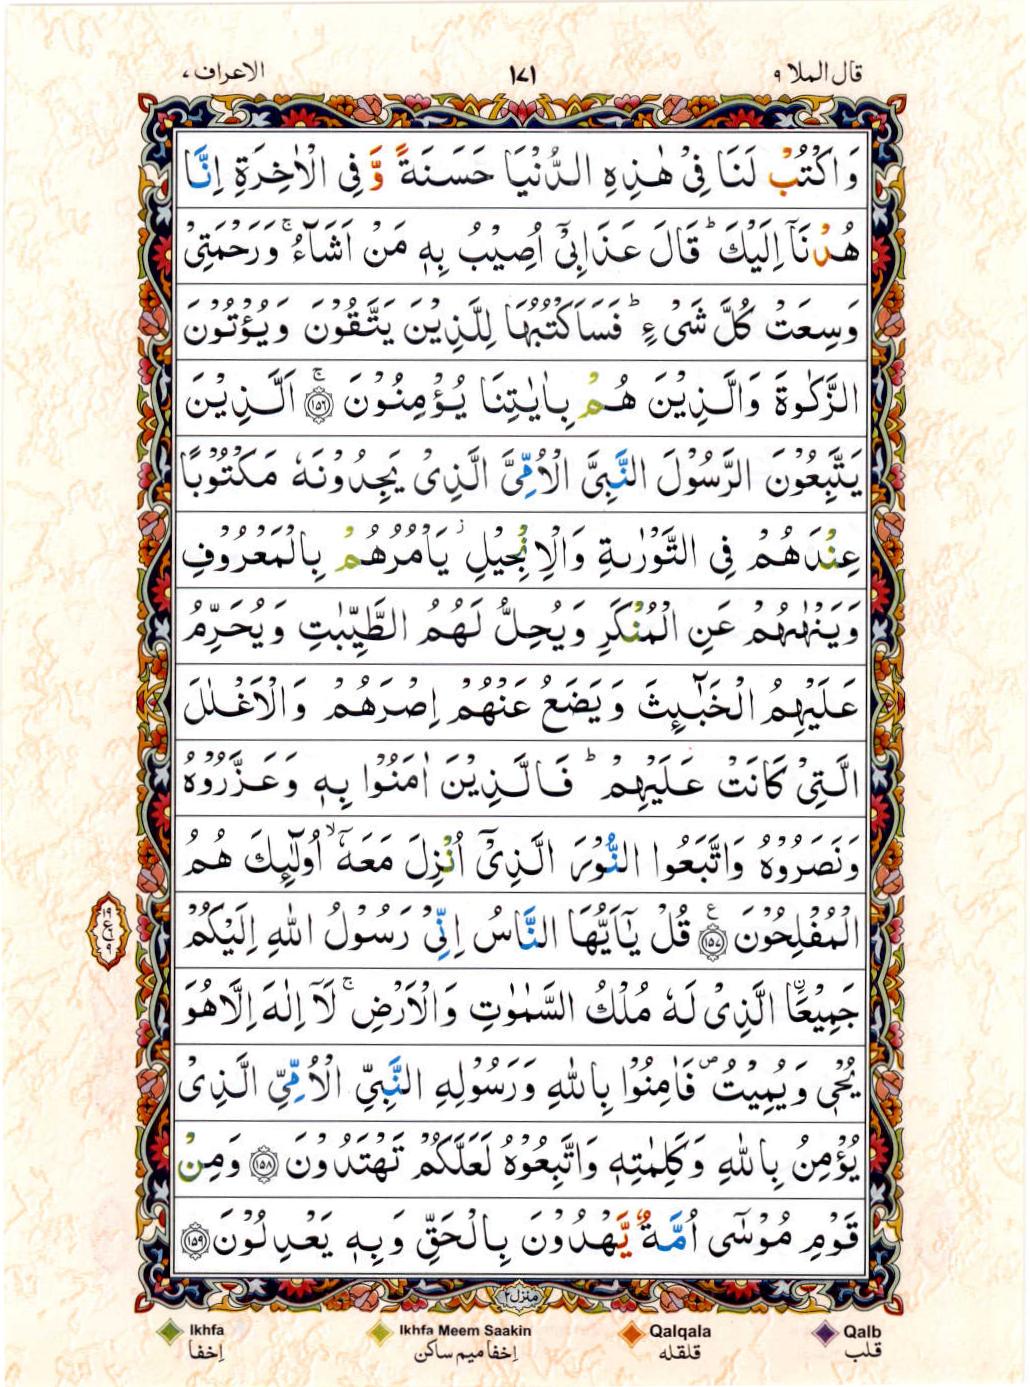 قال الملا ٩
١٧١
الاعراف ٧
وَاكْتُبْ لَنَا فِیْ هٰذِهِ الدُّنْیَا حَسَنَةً وَّ فِی الْاٰخِرَةِ اِنَّا
هُدْنَاۤ اِلَیْكَ ؕ قَالَ عَذَابِیْۤ اُصِیْبُ بِهٖ مَنْ اَشَآءُ ۚ وَرَحْمَتِیْ
وَسِعَتْ كُلَّ شَیْءٍ ؕ فَسَاَكْتُبُهَا لِلَّذِیْنَ یَتَّقُوْنَ وَیُؤْتُوْنَ
الزَّكٰوةَ وَالَّذِیْنَ هُمْ بِاٰیٰتِنَا یُؤْمِنُوْنَ ۚ ﴿۱۵۶﴾ اَلَّذِیْنَ
یَتَّبِعُوْنَ الرَّسُوْلَ النَّبِیَّ الْاُمِّیَّ الَّذِیْ یَجِدُوْنَهٗ مَكْتُوْبًا
عِنْدَهُمْ فِی التَّوْرٰىةِ وَالْاِنْجِیْلِ ؗ یَاْمُرُهُمْ بِالْمَعْرُوْفِ
وَیَنْهٰىهُمْ عَنِ الْمُنْكَرِ وَیُحِلُّ لَهُمُ الطَّیِّبٰتِ وَیُحَرِّمُ
عَلَیْهِمُ الْخَبٰٓىِٕثَ وَیَضَعُ عَنْهُمْ اِصْرَهُمْ وَالْاَغْلٰلَ
الَّتِیْ كَانَتْ عَلَیْهِمْ ؕ فَالَّذِیْنَ اٰمَنُوْا بِهٖ وَعَزَّرُوْهُ
وَنَصَرُوْهُ وَاتَّبَعُوا النُّوْرَ الَّذِیْۤ اُنْزِلَ مَعَهٗۤ ۙ اُولٰٓىِٕكَ هُمُ
الْمُفْلِحُوْنَ ﴿۱۵۷﴾ ع قُلْ یٰۤاَیُّهَا النَّاسُ اِنِّیْ رَسُوْلُ اللهِ اِلَیْكُمْ
جَمِیْعَا ۨالَّذِیْ لَهٗ مُلْكُ السَّمٰوٰتِ وَالْاَرْضِ ۚ لَاۤ اِلٰهَ اِلَّا هُوَ
یُحْیٖ وَیُمِیْتُ ۪ فَاٰمِنُوْا بِاللهِ وَرَسُوْلِهِ النَّبِیِّ الْاُمِّیِّ الَّذِیْ
یُؤْمِنُ بِاللهِ وَكَلِمٰتِهٖ وَاتَّبِعُوْهُ لَعَلَّكُمْ تَهْتَدُوْنَ ﴿۱۵۸﴾ وَمِنْ
قَوْمِ مُوْسٰۤی اُمَّةٌ یَّهْدُوْنَ بِالْحَقِّ وَبِهٖ یَعْدِلُوْنَ ﴿۱۵۹﴾
منزل ٢
Ikhfa
Ikhfa Meem Saakin
Qalqala
Qalb
اِخفا
اِخفا میم ساکن
قلقلہ
قلب